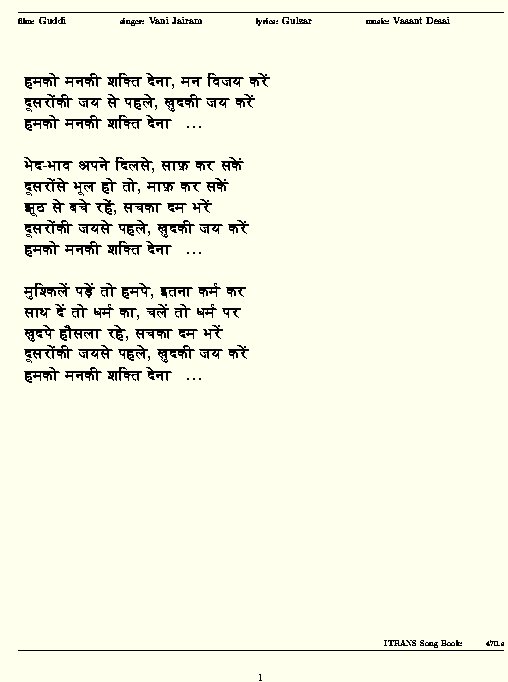 film: Guddi singer: Vani Jairam lyrics: Gulzar music: Vasant Desai
हमको मनकी शक्ति देना, मन विजय करें
दूसरोंकी जय से पहले, ख़ुदकी जय करें
हमको मनकी शक्ति देना ...
भेद-भाव अपने दिलसे, साफ़ कर सकें
दूसरोंसे भूल हो तो, माफ़ कर सकें
झूठ से बचे रहें, सचका दम भरें
दूसरोंकी जयसे पहले, ख़ुदकी जय करें
हमको मनकी शक्ति देना ...
मुश्किलें पड़ें तो हमपे, इतना कर्म कर
साथ दें तो धर्म का, चलें तो धर्म पर
ख़ुदपे हौसला रहे, सचका दम भरें
दूसरोंकी जयसे पहले, ख़ुदकी जय करें
हमको मनकी शक्ति देना ...
ITRANS Song Book: 470.s
1